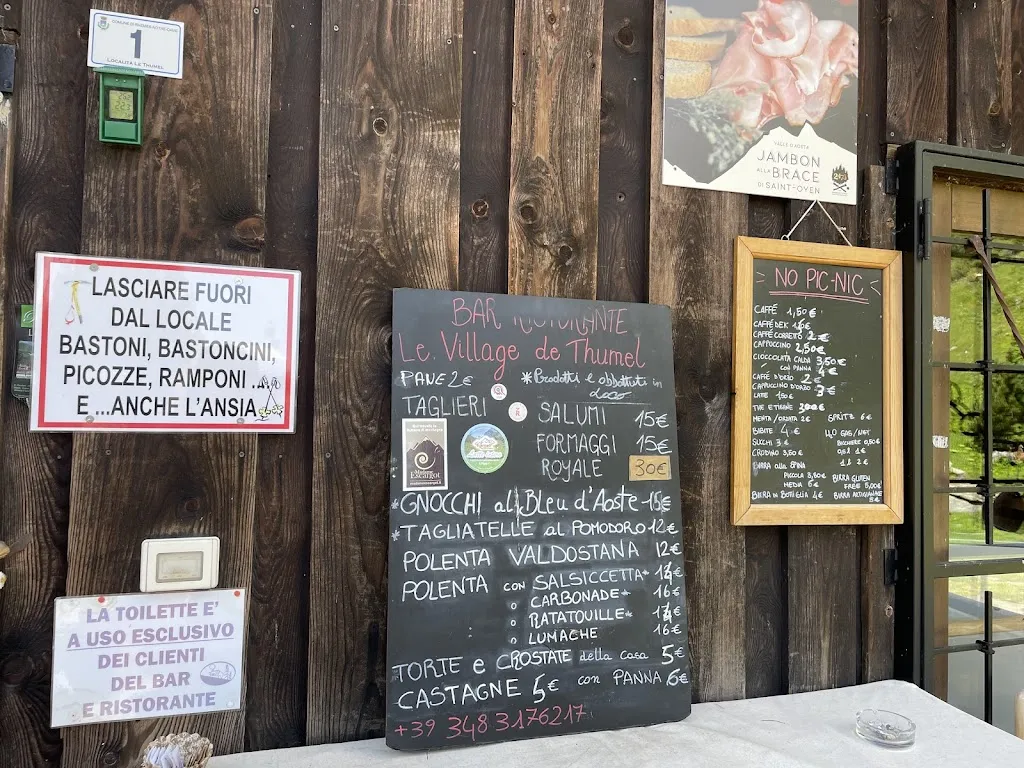 1
LOCALITÀ LE THUMEL
VALLE D'AOSTA
JAMBON
ALLA BRACE
DI SAINT-OYEN
LASCIARE FUORI
DAL LOCALE
BASTONI, BASTONCINI,
PICOZZE, RAMPONI ...
E ...ANCHE L'ANSIA
LA TOILETTE E'
A USO ESCLUSIVO
DEI CLIENTI
DEL BAR
E RISTORANTE
BAR RISTORANTE
Le Village de Thumel
PANE 2€ *Prodotti e abbattuti in loco
TAGLIERI
SALUMI 15€
FORMAGGI 15€
ROYALE 30€
Escargot
*GNOCCHI al Bleu d'Aoste 15€
*TAGLIATELLE al POMODORO 12€
POLENTA VALDOSTANA 12€
POLENTA con SALSICCETTA* 14€
o CARBONADE* 16€
o RATATOUILLE* 14€
o LUMACHE 16€
TORTE e CROSTATE della casa 5€
CASTAGNE 5€ con PANNA 6€
+39 348 3176217
NO PIC-NIC
CAFFÉ 1,50€
CAFFÉ DEK
CAFFÉ CORRETTO 2€
CAPPUCCINO 2,50€
CIOCCOLATA CALDA 3,50€
CON PANNA 4€
CAFFÉ D'ORZO 2€
CAPPUCCINO D'ORZO 3€
LATTE 1,50€
THE TISANE 3,00€
MENTA/ORZATA 2€ SPRITZ 6€
BIBITE 4€ H2O GAS/NAT
SUCCHI 3€ BICCHIERE 0,50€
CRODINO 3,50€ 0,5L 1€
BIRRA alla SPINA 1L 2€
PICCOLA 3,80€ BIRRA GLUTEN
MEDIA 6€ FREE 5,00€
BIRRA IN BOTTIGLIA 4€ BIRRA ARTIGIANALE